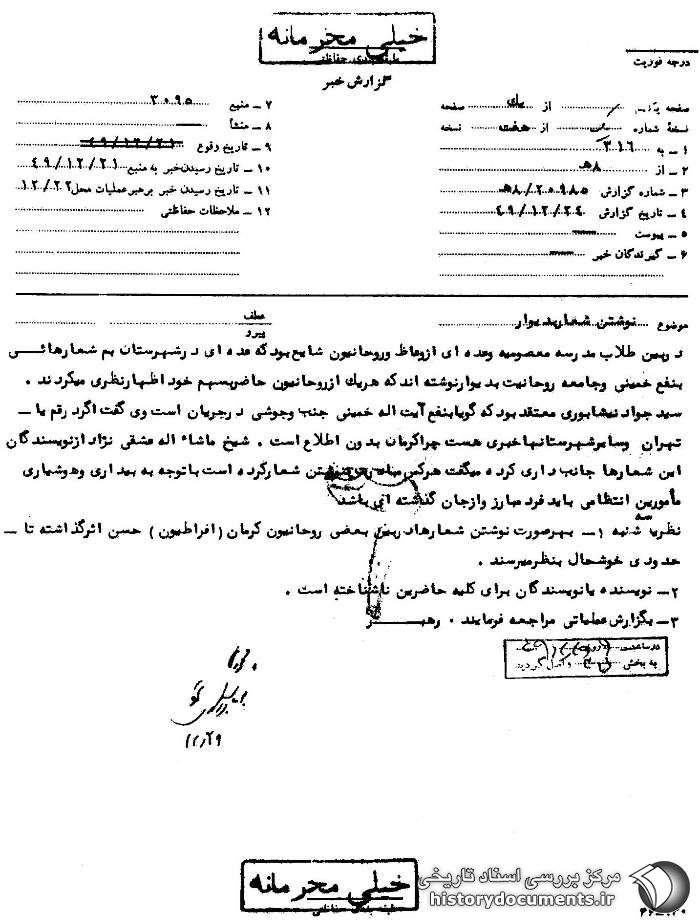 خیلی محرمانه
طبقه‌بندی حفاظتی
درجه فوریت
گزارش خبر
صفحه یک از یک صفحه
نسخهٔ شماره از هفت نسخه
۱ – به ۳۱۶
۲ – از ۸ﻫ
۳ – شماره گزارش ۲۰۹۸۵/۸ﻫ
۴ – تاریخ گزارش ۴۹/۱۲/۲۴
۵ – پیوست
۶ – گیرندگان خبر
۷ – منبع ۳۰۹۵
۸ – منشأ
۹ – تاریخ وقوع ۴۹/۱۲/۲۱
۱۰ – تاریخ رسیدن خبر به منبع ۴۹/۱۲/۲۱
۱۱ – تاریخ رسیدن خبر برهبر عملیات محل ۱۲/۲۲
۱۲ – ملاحظات حفاظتی
موضوع نوشتن شعار بدیوار
عطف
پیرو
در بین طلاب مدرسه معصومیه وعده ای ازوعاظ وروحانیون شایع بود که عده ای در شهرستان بم شعارهائی
بنفع خمینی وجامعه روحانیت بدیوار نوشته اند که هریك از روحانیون حاضر بسهم خود اظهار نظری میکردند .
سید جواد نیشابوری معتقد بود که گویا بنفع آیت اله خمینی جنب وجوشی در جریان است وی گفت اگر در قم یا –
تهران وسایر شهرستانها خبری هست چرا کرمان بدون اطلاع است . شیخ ماشاء اله عشقی نژاد از نویسندگان
این شعارها جانب داری کرده میگفت هرکس نوشتن شعار کرده است با توجه به بیداری وهوشیاری
مأمورین انتظامی باید فرد مبارز وازجان گذشته ای باشد
نظریه سه شنبه ۱– بهر صورت نوشتن شعارها در بین بعضی روحانیون کرمان ( افراطیون ) حسن اثر گذاشته تا –
حدودی خوشحال بنظر میرسند .
۲– نویسنده یا نویسندگان برای کلیه حاضرین ناشناخته است .
۳– بگزارش عملیاتی مراجعه فرمایند . رهبر
در ساعت روز
به بخش واصل گردید
۱۲/۲۹
خیلی محرمانه
طبقه‌بندی حفاظتی
مرکز بررسی اسناد تاریخی
historydocuments.ir